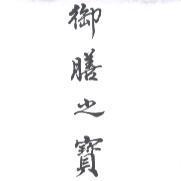 御膳之寳